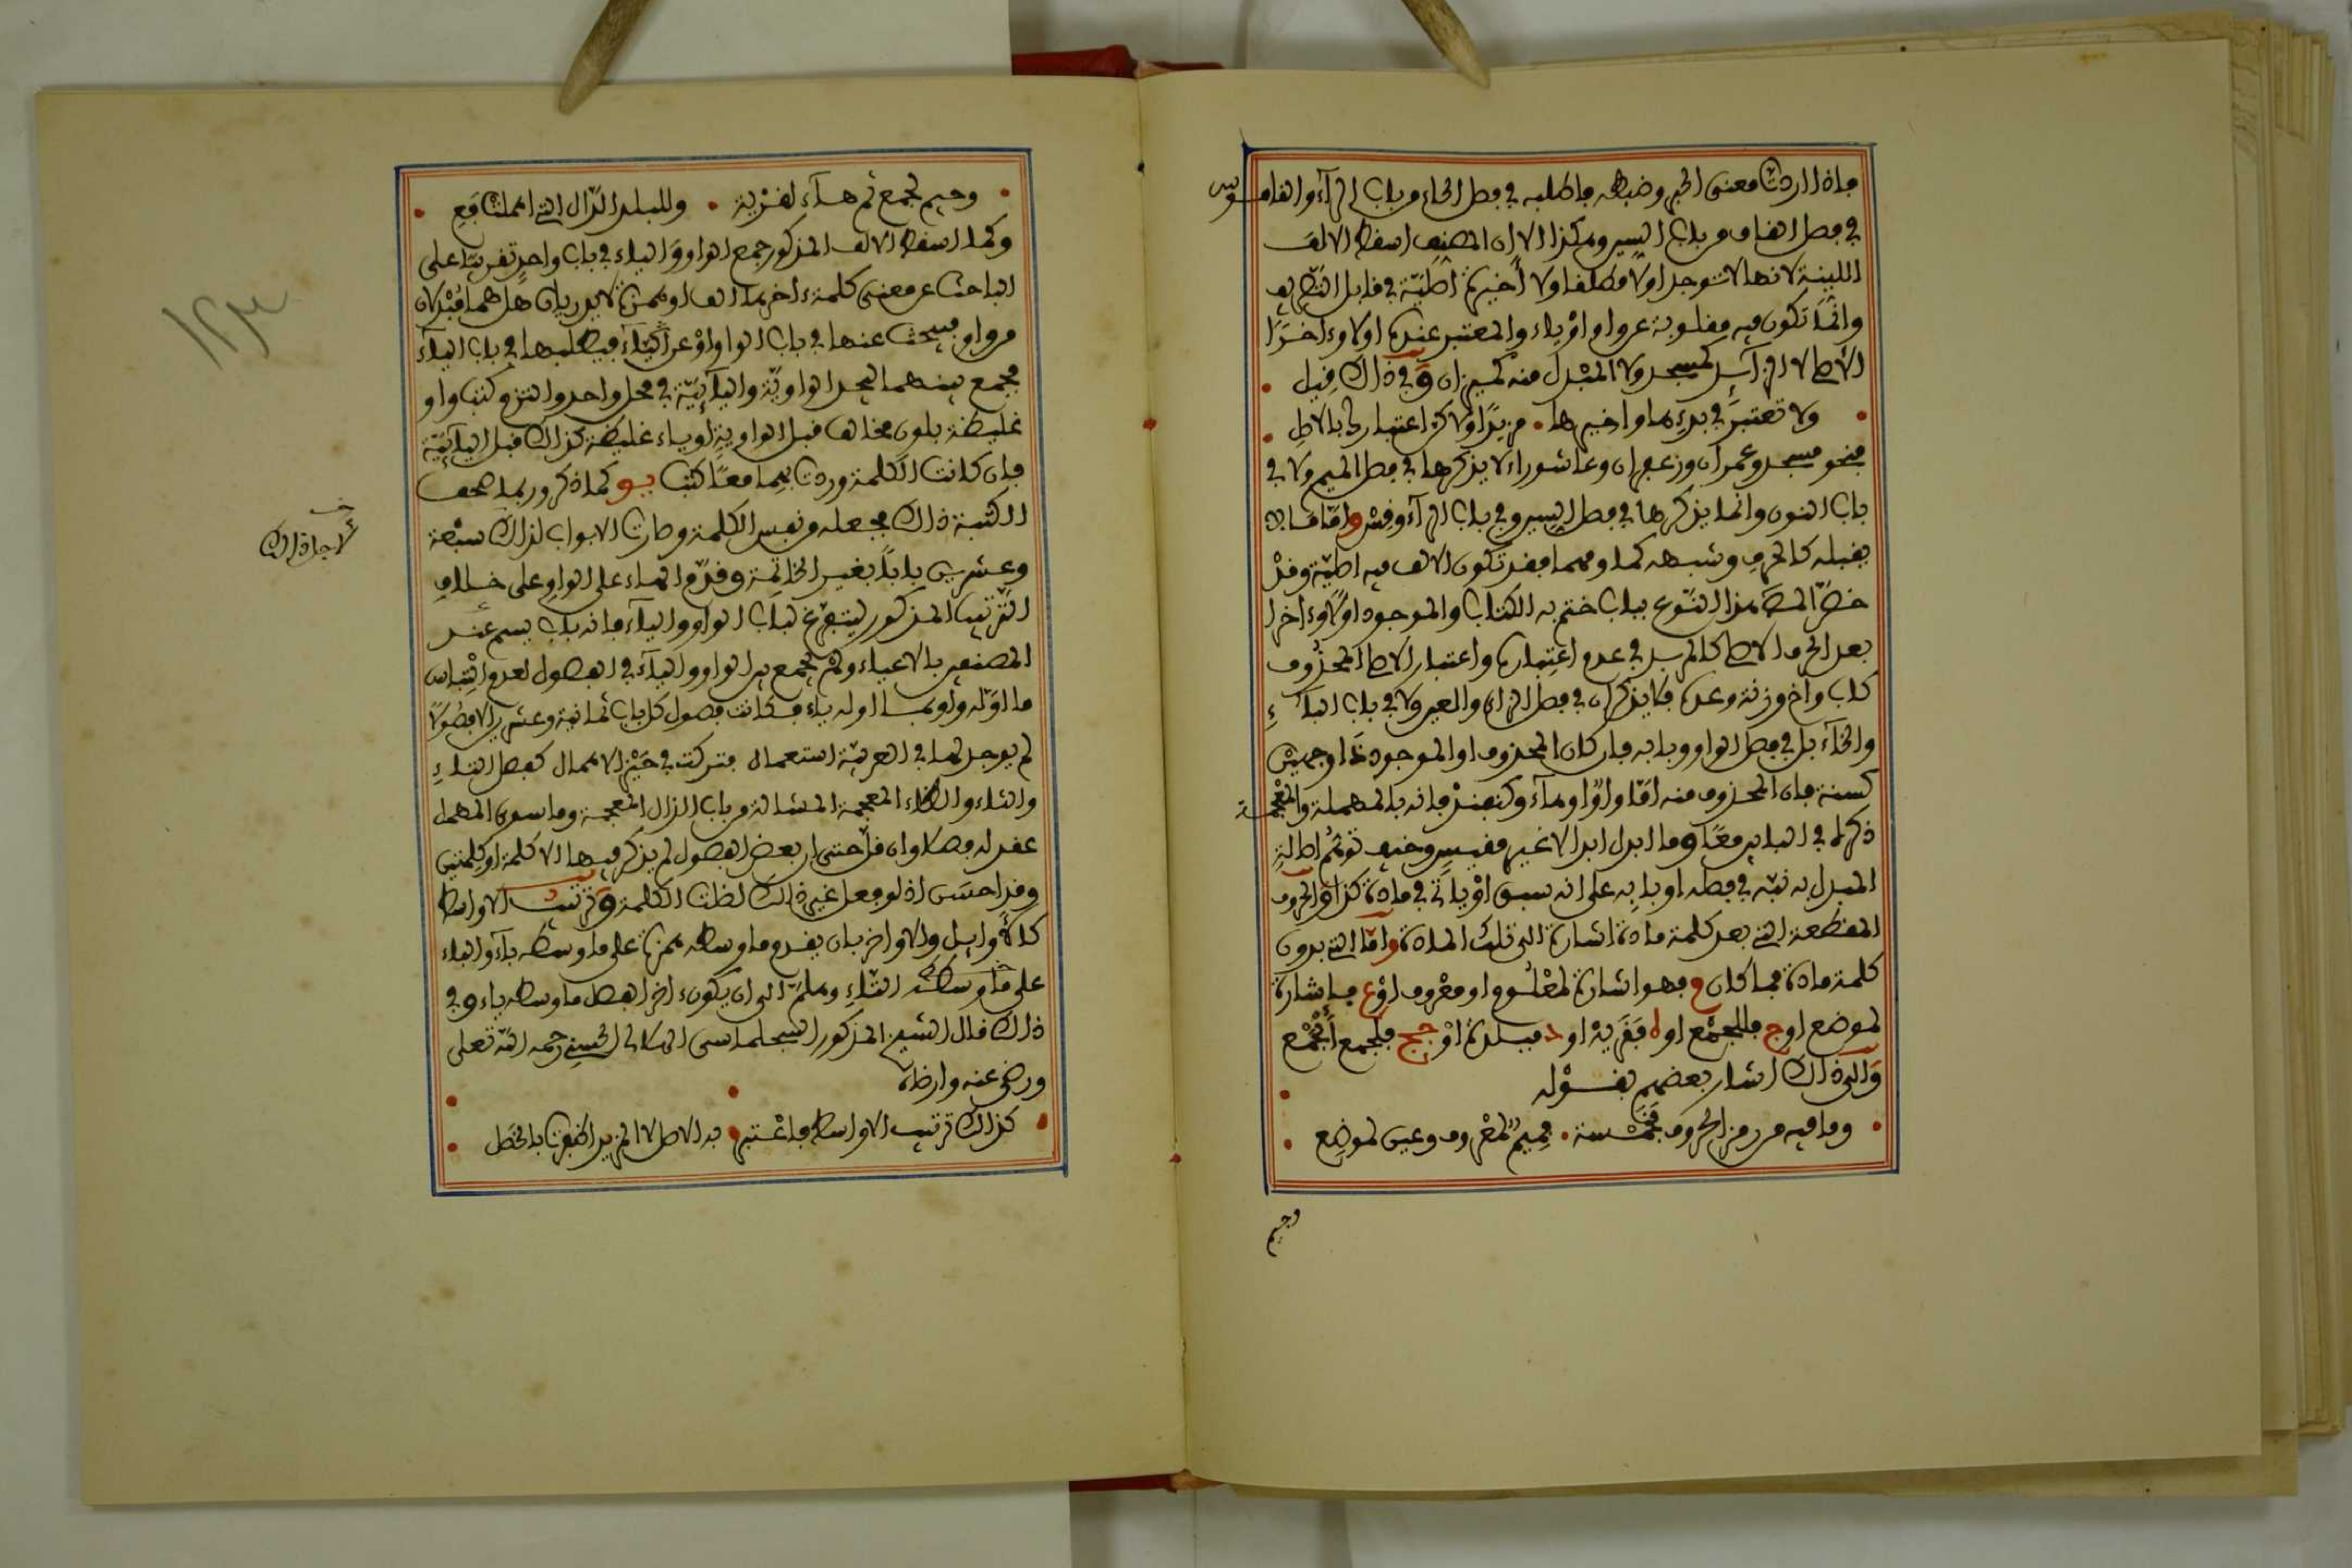 فإذا اردت معنى الحبر وضبطه فاطلبه في فصل الحاء من باب الراء والقاموس
في فصل القاف من باب السين وهكذا الا ان المصنف اسقط الالف
اللينة لانها لا توجد اولا مطلقا ولا أخيرة اصليّة في قابل التصريف
وانّما تكون فيه مقلوبة عن واو او ياء والمعتبر عنده اولا وءاخرًا
الأصل لا الزائد كمسجد ولا المبدل منه كميزان وفي ذاك قيل
ولا تعتبر في بدءها واخيرها • مزيدًا ولاكن اعتبارك بالاصل
فنحو مسجد وعمران وزعفران وعاشوراء لا يذكرها في فصل الميم ولا في
باب النون وانما يذكرها في فصل السين وفي باب الراء وقس واما ما لا
يقبله كالحرف وشبهه كما ومهما فقد تكون الالف فيه اصليّة وقد
خصّ المص هذا النوع بباب ختم به الكتاب والموجود اولا وءاخرا
بعد الحرف الاصل كالمزيد في عدم اعتباره واعتبار الاصل المحذوف
كاب وأخ وزنة وعدة فلا يذكران في فصل الزاي والعين ولا في باب الباء
والخاء بل في فصل الواو وبابه فان كان المحذوف او الموجود ذا وجهين
كسنة فان المحذوف منه امّا واوًا وهاء وكبغند فانه بالمهملة والمعجمة
ذكره في البابين معًا وما ابدل ابدالا غير مقيس وخيف توهّم اصالة
المبدل به نبّه في فصله او بابه على انه سبق او ياتي في مادة كذا والحروف
المقطعة التي بعد كلمة مادة اشارة الى تلك المادة واما التي بدون
كلمة مادة فما كان م فهو اشارة لمعلوم او معروف او ع فاشارة
لموضع او ج فللجمع او ه فقرية او د فبلدة او جج فلجمع الجمع
والى ذاك اشار بعضهم بقوله
وما فيه من رمز الحروف فخمسة • فميم لمعروف وعين لموضع
وجيم
وجيم لجمع ثم هاء لقرية • وللبلد الدّال التي اهملت فع
وكما اسقط الالف المذكور جمع الواو والياء في باب واحد تقريبًا على
الباحث عن معنى كلمة ءاخرها الف او همزة لا يدري ان هل هما مبدلان
من واو فيبحث عنها في باب الواو او عن الياء فيطلبها في باب الياء
فجمع بينهما ليجد الواويّة واليائيّة في محل واحد والتزم كتب واو
غليظة بلون مخالف قبل الواوية وياء غليظة كذلك قبل اليائيّة
فان كانت الكلمة وردت بهما معًا كتب يو كما ذكر وربما صحف
الكتبة ذاك فجعله من نفس الكلمة وصارت الابواب لذاك سبعة
وعشرين بابًا بغير الخاتمة وقدّم الهاء على الواو على خلاف
لاجل ذاك
الترتيب المذكور ليتفرغ لباب الواو والياء فانه باب يسم عند
المصنفين بالاعياء ولم يجمع بين الواو والياء في الفصول لعدم التباس
ما اوّله واو بما اوله ياء فكانت فصول كل باب ثمانية وعشرين الا فصولًا
لم يوجد لها في العربيّة استعمال فتركت في حيّز الاهمال كفصل التاء
والثاء والظاء المعجمة المشالة من باب الذال المعجمة وما سوى المهمل
عقد له فصلا وان قلّ حتى ان بعض الفصول لم يذكر فيها الا كلمة او كلمتين
وقد احسن اذ لو فعل غير ذاك لضلت الكلمة وترتيب الاواسط
كالأوايل والاواخر بان يقدم ما وسطه همزة على ما وسطه باء والباء
على ما وسطه التاء وهلمّ الى ان يكون ءاخر الفصل ما وسطه ياء وفي
ذاك قال الشيخ المذكور السجلماسي الهلالي الحسني رحمه الله تعلى
ورضي عنه وارضاه
كذاك ترتيب الاواسط فاعتبر • به الاصل لا المزيد اظفرت بالخصل